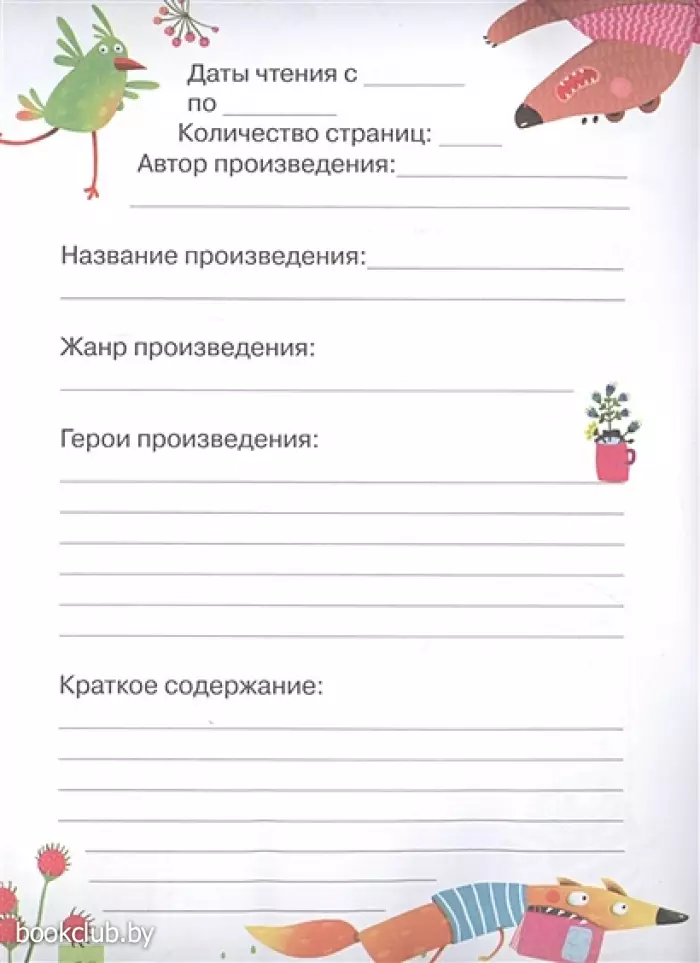 Даты чтения с
по
Количество страниц:
Автор произведения:
Название произведения:
Жанр произведения:
Герои произведения:
Краткое содержание:
bookclub.by